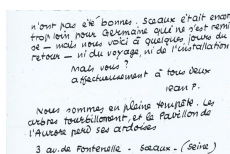 n'ont pas été bonnes. Sceaux était encor
trop loin pour Germaine qui ne s'est remi
se — mais nous voici à quelques jours du
retour — ni du voyage, ni de l'installation
Mais vous ?
affectueusement à tous deux
Jean P.
Nous sommes en pleine tempête. Les
arbres tourbillonnent, et le Pavillon de
l'Aurore perd ses ardoises
3 av. de Fontenelle - Sceaux - (Seine)